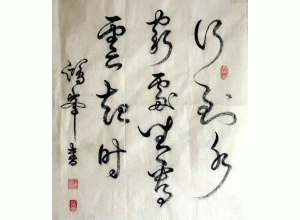 行到水
穷处坐看
云起时
鸿峰书